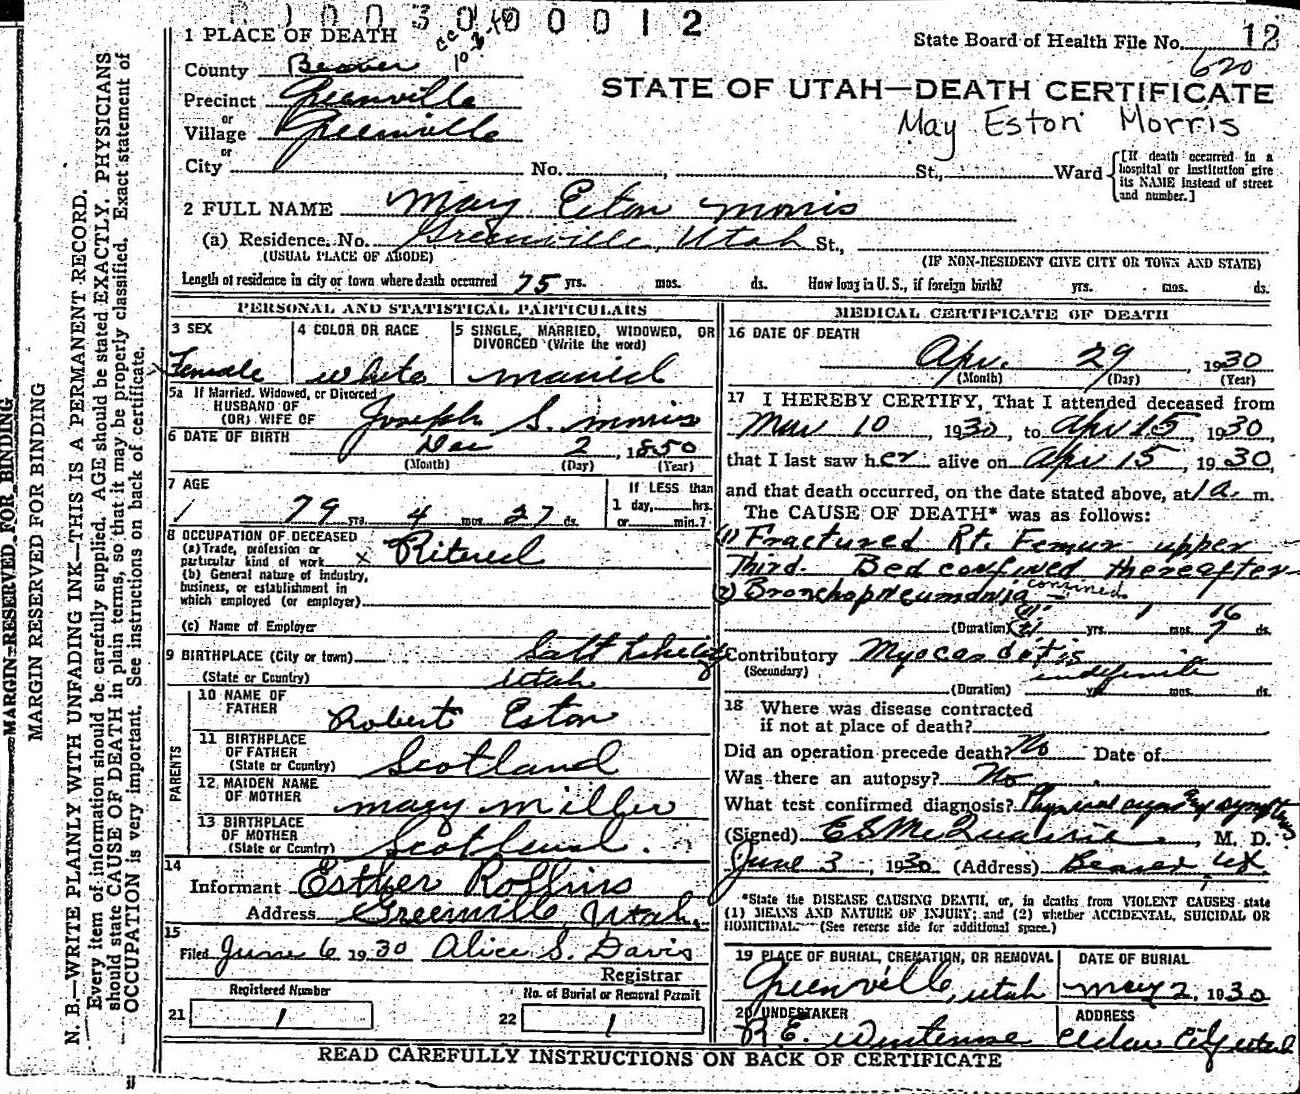 0 1 0 0 3 0 0 0 0 1 2
1 PLACE OF DEATH
State Board of Health File No. 12
620
County Beaver
STATE OF UTAH—DEATH CERTIFICATE
Precinct Greenville
or
Village Greenville
May Eston Morris
or
City No. , St., Ward
[If death occurred in a
hospital or institution give
its NAME instead of street
and number.]
2 FULL NAME May Eston Morris
(a) Residence. No. Greenville, Utah St.,
(USUAL PLACE OF ABODE) (IF NON-RESIDENT GIVE CITY OR TOWN AND STATE)
Length of residence in city or town where death occurred 75 yrs. mos. ds. How long in U. S., if foreign birth? yrs. mos. ds.
PERSONAL AND STATISTICAL PARTICULARS
3 SEX
Female
4 COLOR OR RACE
White
5 SINGLE, MARRIED, WIDOWED, OR
DIVORCED (Write the word)
married
5a If Married, Widowed, or Divorced
HUSBAND OF
(OR) WIFE OF Joseph S. Morris
6 DATE OF BIRTH Dec 2, 1850
(Month) (Day) (Year)
7 AGE
79 yrs. 4 mos. 27 ds.
If LESS than
1 day, hrs.
or min.?
8 OCCUPATION OF DECEASED
(a) Trade, profession or
particular kind of work x Ritired
(b) General nature of industry,
business, or establishment in
which employed (or employer)
(c) Name of Employer
9 BIRTHPLACE (City or town) Salt Lake City
(State or Country) Utah
PARENTS
10 NAME OF
FATHER Robert Eston
11 BIRTHPLACE
OF FATHER
(State or Country) Scotland
12 MAIDEN NAME
OF MOTHER Mary Miller
13 BIRTHPLACE
OF MOTHER
(State or Country) Scotland.
14
Informant Esther Rollins
Address Greenville, Utah.
15
Filed June 6 1930 Alice S. Davis
Registrar
Registered Number
21 1
No. of Burial or Removal Permit
22 1
MEDICAL CERTIFICATE OF DEATH
16 DATE OF DEATH
Apr. 29, 1930
(Month) (Day) (Year)
17 I HEREBY CERTIFY, That I attended deceased from
Mar 10, 1930, to Apr 15, 1930
that I last saw her alive on Apr 15, 1930,
and that death occurred, on the date stated above, at 1 a. m.
The CAUSE OF DEATH* was as follows:
(1) Fractured Rt. Femur upper
Third. Bed confined thereafter
(2) Bronchopneumonia
(1) 1 16
(Duration) (2) yrs. mos. 7 ds.
Contributory Myocarditis
(Secondary) indefinite
(Duration) yrs. mos. ds.
18 Where was disease contracted
if not at place of death?
Did an operation precede death? No Date of
Was there an autopsy? No
What test confirmed diagnosis? Physical signs & symptoms
(Signed) E S McQuarrie, M. D.
June 3, 1930 (Address) Beaver, Ut.
*State the DISEASE CAUSING DEATH, or, in deaths from VIOLENT CAUSES state
(1) MEANS AND NATURE OF INJURY; and (2) whether ACCIDENTAL, SUICIDAL OR
HOMICIDAL. (See reverse side for additional space.)
19 PLACE OF BURIAL, CREMATION, OR REMOVAL
Greenville, Utah
DATE OF BURIAL
May 2, 1930
20 UNDERTAKER
R. E.
ADDRESS
Cedar City Utah
READ CAREFULLY INSTRUCTIONS ON BACK OF CERTIFICATE
MARGIN RESERVED FOR BINDING
MARGIN RESERVED FOR BINDING
N. B.—WRITE PLAINLY WITH UNFADING INK—THIS IS A PERMANENT RECORD.
Every item of information should be carefully supplied. AGE should be stated EXACTLY. PHYSICIANS
should state CAUSE OF DEATH in plain terms, so that it may be properly classified. Exact statement of
OCCUPATION is very important. See instructions on back of certificate.